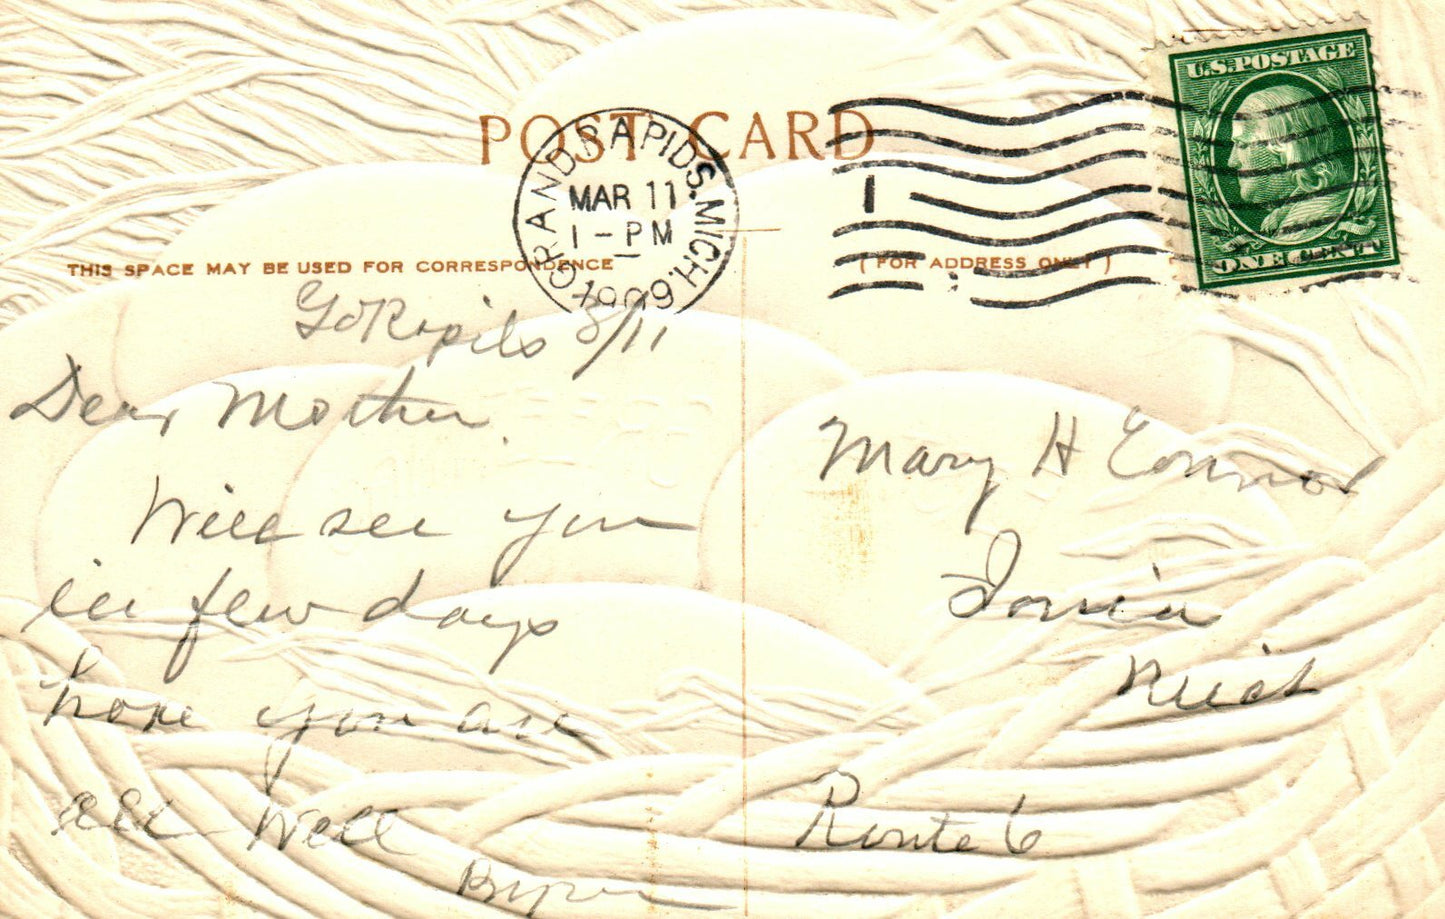 POST CARD
GRAND RAPIDS, MICH.
MAR 11
1 - PM
1909
1
U.S. POSTAGE
ONE CENT
THIS SPACE MAY BE USED FOR CORRESPONDENCE
(FOR ADDRESS ONLY)
Gd Rapids 3/11
Dear Mother.
Will see you
in few days
hope you are
all Well
Byron
Mary H Connor
Ionia
Mich
Route 6